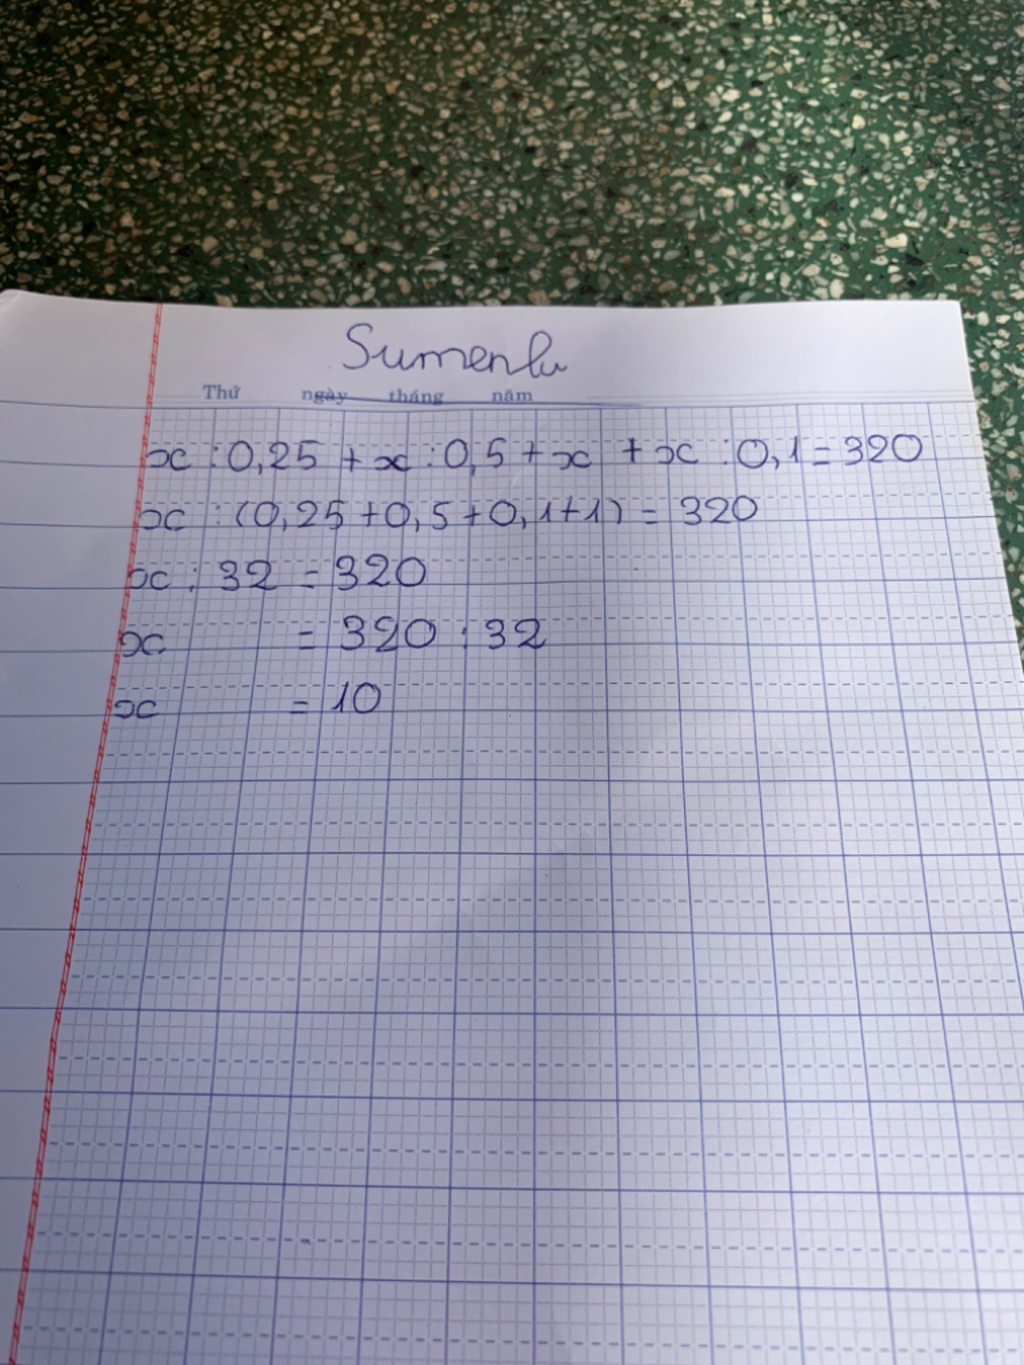 Sumenlu
Thứ ngày tháng năm
x : 0,25 + x : 0,5 + x + x : 0,1 = 320
x : (0,25 + 0,5 + 0,1 + 1) = 320
x : 32 = 320
x = 320 : 32
x = 10